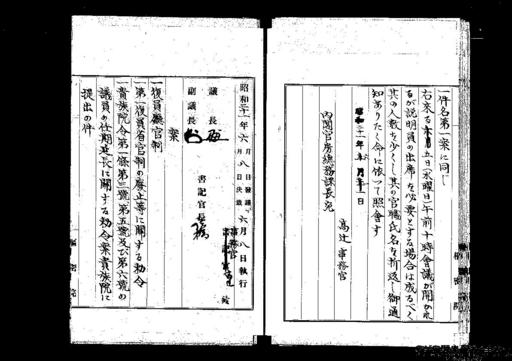 一件名第一案に同し
右来る五日(水曜日)午前十時會議が開かれ
るが説明員の出席を必要とする場合は成るべく
其の人数を少くし其の官職氏名を折返し御通
知ありたく命に依って照會す
昭和二十一年 月 日
高辻事務官
内閣官房総務課長宛
昭和二十一年六月八日發議 六月八日決裁 六月八日執行
議長
副議長
書記官長
事務官
案
一復員廳官制
一第一復員省官制の廃止等に關する勅令
一貴族院令第一條第三號第五號及び第六號の
議員の任期延長に關する勅令案貴族院に
提出の件